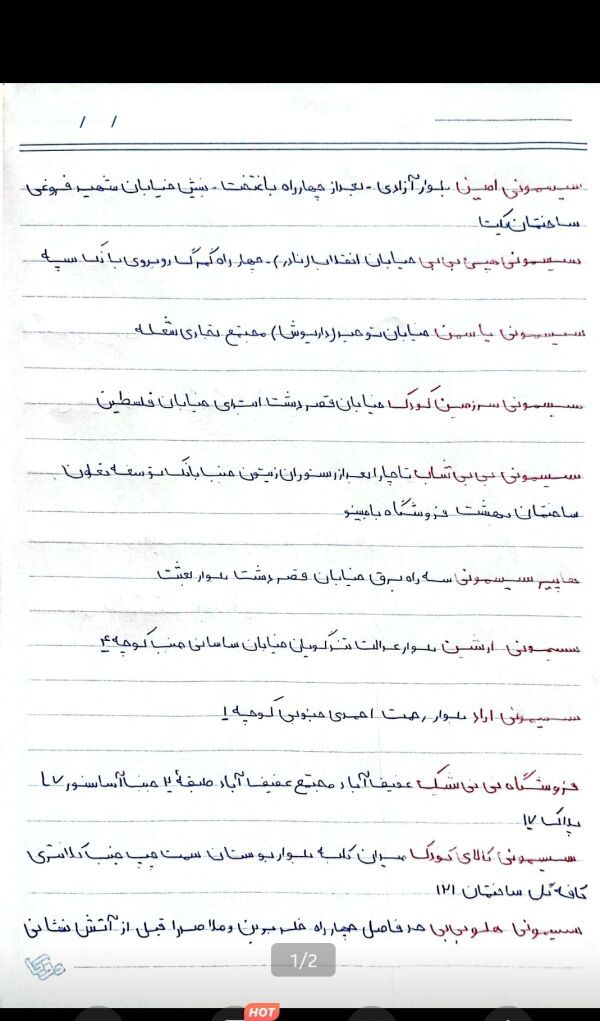 / /
سیسمونی امین بلوار آزادی - بعد از چهارراه باغتخت - نبش خیابان شهید فروغی
ساختمان گیتا
سیسمونی هپی بی بی خیابان انقلاب (نادر) - چهارراه گمرک روبروی بانک سپه
سیسمونی یاسمن خیابان توحید (داریوش) مجتمع تجاری شعله
سیسمونی سرزمین کودک خیابان قصردشت ابتدای خیابان فلسطین
سیسمونی بی بی شاپ تاچارا بعد از رستوران زیتون جنب بانک توسعه تعاون
ساختمان بهشت فروشگاه بامبینو
هایپر سیسمونی سه راه برق خیابان قصردشت بلوار بعثت
سیسمونی ارشین بلوار عدالت خیابان ساسانی جنب کوچه ۴
سیسمونی اراد بلوار رحمت احمدی جنوبی کوچه ۱
فروشگاه بی بی شک عفیف آباد مجتمع عفیف آباد طبقه ۲ جنب آسانسور L7
پلاک ۱۷
سیسمونی کالای کودک میدان کلبه بلوار بوستان سمت چپ جنب کلانتری
کافه گل ساختمان ۱۲۱
سیسمونی هلو بی‌بی حد فاصل چهارراه خلدبرین و ملاصدرا قبل از آتش نشانی
1/2
HOT